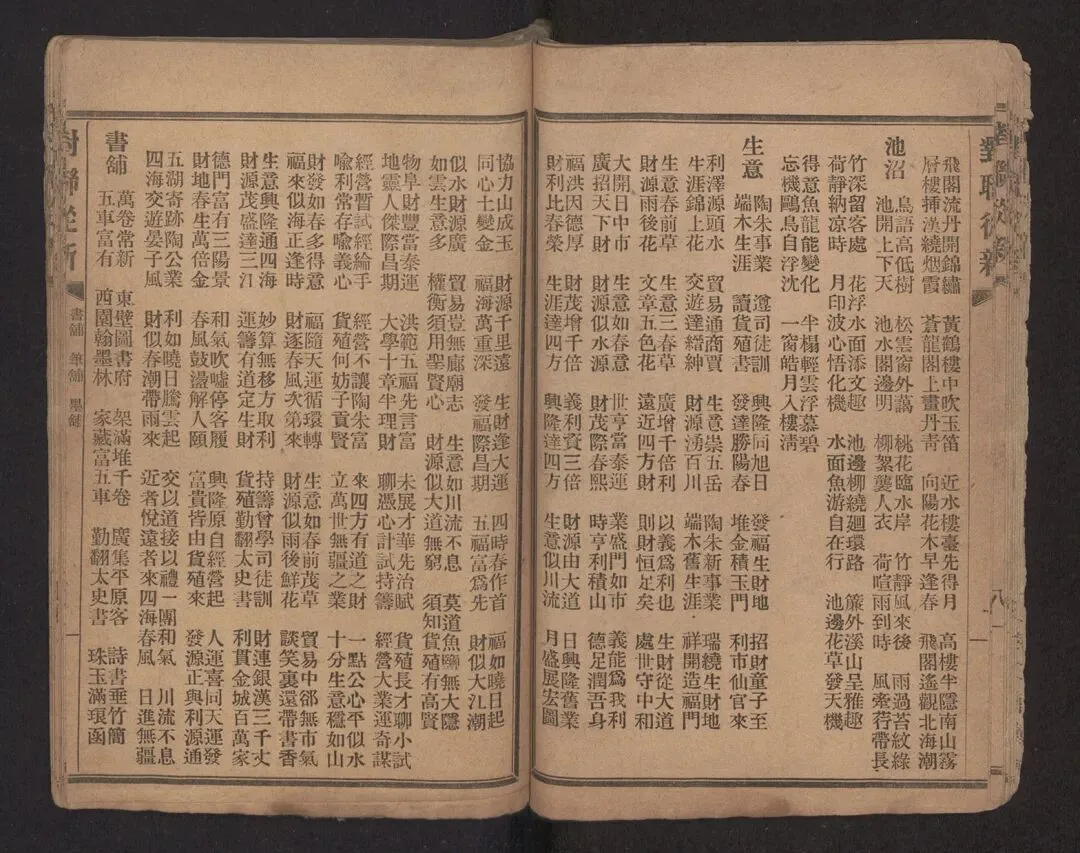 對聯從新 八
飛閣流丹開錦繡 黃鶴樓中吹玉笛 近水樓臺先得月 高樓半隱南山霧
層樓揷漢繞烟霞 蒼龍閣上畫丹靑 向陽花木早逢春 飛閣遙觀北海潮
池沼 鳥語高低樹 松雲窗外藹 桃花臨水岸 竹靜風來後 雨過苔紋綠
池開上下天 池水閣邊明 柳絮襲人衣 荷喧雨到時 風牽荇帶長
竹深留客處 花浮水面添文趣 池邊柳繞廻環路 簾外溪山呈雅趣
荷靜納凉時 月印波心悟化機 水面魚游自在行 池邊花草發天機
得意魚龍能變化 半榻輕雲浮慕碧
忘機鷗鳥自浮沈 一窗皓月入樓淸
生意 陶朱事業 遵司徒訓 興隆同旭日 發福生財地 招財童子至
端木生涯 讀貨殖書 發達勝陽春 堆金積玉門 利市仙官來
利澤源頭水 貿易通商賈 生意崇五岳 陶朱新事業 瑞繞生財地
生涯錦上花 交遊達縉紳 財源湧百川 端木舊生涯 祥開造福門
生意春前草 生意三春草 廣增十倍利 以義爲利也 生財從大道
財源雨後花 文章五色花 遠近四方財 則財恒足矣 處世守中和
大開日中市 生意如春意 世亨當泰運 業盛門如市 義能爲我利
廣招天下財 財源似水源 財茂際春熙 時亨利積山 德足潤吾身
福洪因德厚 財茂增千倍 義利資三倍 財源由大道 日興隆舊業
財利比春榮 生涯達四方 興隆達四方 生意似川流 月盛展宏圖
協力山成玉 財源千里遠 生財逢大運 四時春作首 福如曉日起
同心土變金 福海萬重深 發福際昌期 五福富爲先 財似大江潮
似水財源廣 貿易豈無廊廟志 生意如川流不息 莫道魚鹽無大隱
如雲生意多 權衡須用聖賢心 財源似大道無窮 須知貨殖有高賢
物阜財豐當泰運 洪範五福先言富 未展才華先治賦 貨殖長才聊小試
地靈人傑際昌期 大學十章半理財 聊憑心計試持籌 經營大業運奇謀
經營暫試經綸手 經營不讓陶朱富 來四方有道之財 一點公心平似水
喩利常存喩義心 貨殖何妨子貢賢 立萬世無疆之業 十分生意穩如山
財發如春多得意 福隨天運循環轉 生意如春前茂草 貿易中郤無市氣
福來似海正逢時 財逐春風次第來 財源似雨後鮮花 談笑裏還帶書香
生意興隆通四海 妙算無移方取利 持籌曾學司徒訓 財連銀漢三千丈
財源茂盛達三江 運籌有道定生財 貨殖勤翻太史書 利貫金城百萬家
德門富有三陽景 和氣吹噓停客履 興隆原自經營起 人運喜同天運發
財地春生萬倍金 春風鼓盪解人頤 富貴皆由貨殖來 發源正與利源通
五湖寄跡陶公業 利如曉日騰雲起 交以道接以禮一團和氣 川流不息
四海交遊晏子風 財似春潮帶雨來 近者悅遠者來四海春風 日進無疆
書舖 萬卷常新 東壁圖書府 架滿堆千卷 廣集平原客 詩書垂竹簡
五車富有 西園翰墨林 家藏富五車 勤翻太史書 珠玉滿瑱函
對聯從新 書舖 筆舖 墨舖